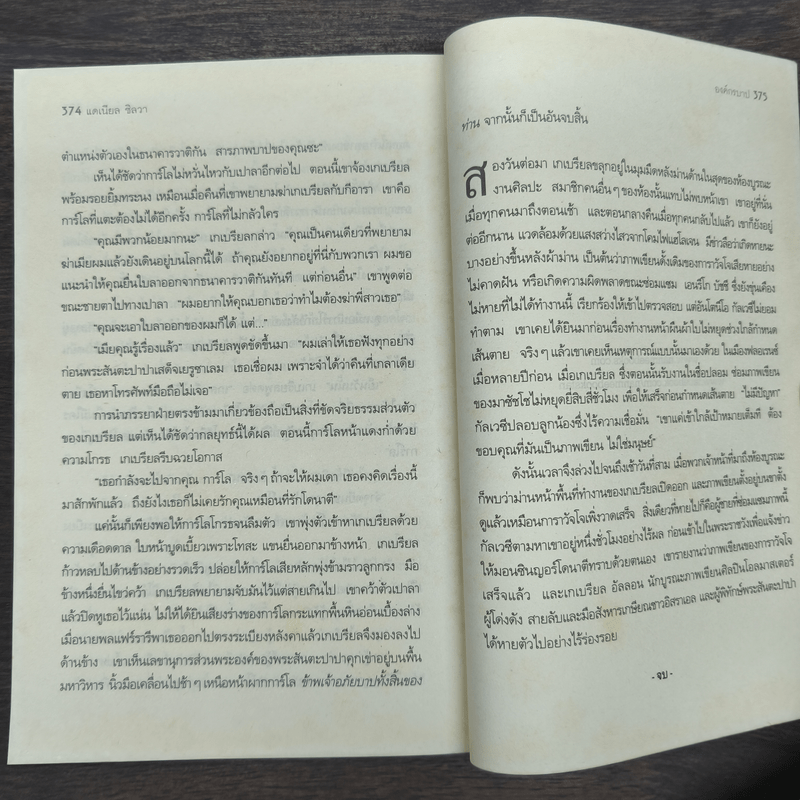 374 แดเนียล ซิลวา
ตำแหน่งตัวเองในธนาคารวาติกัน สารภาพบาปของคุณซะ”
เห็นได้ชัดว่าการ์โลไม่หวั่นไหวกับเปาลาอีกต่อไป ตอนนี้เขาจ้องเกเบรียล
พร้อมรอยยิ้มทระนง เหมือนเมื่อคืนที่เขาพยายามฆ่าเกเบรียลกับกีอารา เขาคือ
การ์โลที่แตะต้องไม่ได้อีกครั้ง การ์โลที่ไม่กลัวใคร
“คุณมีพวกน้อยมากนะ” เกเบรียลกล่าว “คุณเป็นคนเดียวที่พยายาม
ฆ่าเมียผมแล้วยังเดินอยู่บนโลกนี้ได้ ถ้าคุณยังอยากอยู่ที่นี่กับพวกเรา ผมขอ
แนะนำให้คุณยื่นใบลาออกจากธนาคารวาติกันทันที แต่ก่อนอื่น” เขาพูดต่อ
ขณะชายตาไปทางเปาลา “ผมอยากให้คุณบอกเธอว่าทำไมต้องฆ่าพี่สาวเธอ”
“คุณจะเอาใบลาออกของผมก็ได้ แต่...”
“เมียคุณรู้เรื่องแล้ว” เกเบรียลพูดขัดขึ้นมา “ผมเล่าให้เธอฟังทุกอย่าง
ก่อนพระสันตะปาปาเสด็จเยรูซาเลม เธอเชื่อผม เพราะจำได้ว่าคืนที่เกลาเดีย
ตาย เธอหาโทรศัพท์มือถือไม่เจอ”
การนำภรรยาฝ่ายตรงข้ามมาเกี่ยวข้องถือเป็นสิ่งที่ขัดจริยธรรมส่วนตัว
ของเกเบรียล แต่เห็นได้ชัดว่ากลยุทธ์นี้ได้ผล ตอนนี้การ์โลหน้าแดงก่ำด้วย
ความโกรธ เกเบรียลรีบฉวยโอกาส
“เธอกำลังจะไปจากคุณ การ์โล จริงๆ ถ้าจะให้ผมเดา เธอคงคิดเรื่องนี้
มาสักพักแล้ว ถึงยังไงเธอก็ไม่เคยรักคุณเหมือนที่รักโดนาตี”
แค่นั้นก็เพียงพอให้การ์โลโกรธจนลืมตัว เขาพุ่งตัวเข้าหาเกเบรียลด้วย
ความเดือดดาล ใบหน้าบูดเบี้ยวเพราะโทสะ แขนยื่นออกมาข้างหน้า เกเบรียล
ก้าวหลบไปด้านข้างอย่างรวดเร็ว ปล่อยให้การ์โลเสียหลักพุ่งข้ามราวลูกกรง มือ
ข้างหนึ่งยื่นไขว่คว้า เกเบรียลพยายามจับมันไว้แต่สายเกินไป เขาคว้าตัวเปาลา
แล้วปิดหูเธอไว้แน่น ไม่ให้ได้ยินเสียงร่างของการ์โลกระแทกพื้นหินอ่อนเบื้องล่าง
เมื่อนายพลแฟร์รารีพาเธอออกไปตรงระเบียงหลังคาแล้วเกเบรียลจึงมองลงไป
ด้านข้าง เขาเห็นเลขานุการส่วนพระองค์ของพระสันตะปาปาคุกเข่าอยู่บนพื้น
มหาวิหาร นิ้วมือเคลื่อนไปช้าๆ เหนือหน้าผากการ์โล ข้าพเจ้าอภัยบาปทั้งสิ้นของ
องค์กรบาป 375
ท่าน จากนั้นก็เป็นอันจบสิ้น
สองวันต่อมา เกเบรียลขลุกอยู่ในมุมมืดหลังม่านด้านในสุดของห้องบูรณะ
งานศิลปะ สมาชิกคนอื่นๆ ของห้องนั้นแทบไม่พบหน้าเขา เขาอยู่ที่นั่น
เมื่อทุกคนมาถึงตอนเช้า และตอนกลางคืนเมื่อทุกคนกลับไปแล้ว เขาก็ยังอยู่
ต่ออีกนาน แวดล้อมด้วยแสงสว่างไสวจากโคมไฟแฮโลเจน มีข่าวลือว่าเกิดหายนะ
บางอย่างขึ้นหลังผ้าม่าน เป็นต้นว่าภาพเขียนดั้งเดิมของการาวัจโจเสียหายอย่าง
ไม่คาดฝัน หรือเกิดความผิดพลาดขณะซ่อมแซม เอนรีโก บัชชี ซึ่งยังขุ่นเคือง
ไม่หายที่ไม่ได้ทำงานนี้ เรียกร้องให้เข้าไปตรวจสอบ แต่อันโตนีโอ กัลเวซีไม่ยอม
ทำตาม เขาเคยได้ยินมาก่อนเรื่องทำงานหน้าผืนผ้าใบไม่หยุดช่วงใกล้กำหนด
เส้นตาย จริงๆ แล้วเขาเคยเห็นเหตุการณ์แบบนั้นมาเองด้วย ในเมืองฟลอเรนซ์
เมื่อหลายปีก่อน เมื่อเกเบรียล ซึ่งตอนนั้นรับงานในชื่อปลอม ซ่อมภาพเขียน
ของมาซัชโชไม่หยุดยี่สิบสี่ชั่วโมง เพื่อให้เสร็จก่อนกำหนดเส้นตาย “ไม่มีปัญหา”
กัลเวซีปลอบลูกน้องซึ่งไร้ความเชื่อมั่น “เขาแค่เข้าใกล้เป้าหมายเต็มที ต้อง
ขอบคุณที่มันเป็นภาพเขียน ไม่ใช่มนุษย์”
ดังนั้นเวลาจึงล่วงไปจนถึงเช้าวันที่สาม เมื่อพวกเจ้าหน้าที่มาถึงห้องบูรณะ
ก็พบว่าม่านหน้าพื้นที่ทำงานของเกเบรียลเปิดออก และภาพเขียนตั้งอยู่บนขาตั้ง
ดูแล้วเหมือนการาวัจโจเพิ่งวาดเสร็จ สิ่งเดียวที่หายไปก็คือผู้ชายที่ซ่อมแซมภาพนี้
กัลเวซีตามหาเขาอยู่หนึ่งชั่วโมงอย่างไร้ผล ก่อนเข้าไปในพระราชวังเพื่อแจ้งข่าว
ให้มอนซินญอร์โดนาตีทราบด้วยตนเอง เขารายงานว่าภาพเขียนของการาวัจโจ
เสร็จแล้ว และเกเบรียล อัลลอน นักบูรณะภาพเขียนศิลปินโอลมาสเตอร์
ผู้โด่งดัง สายลับและมือสังหารเกษียณชาวอิสราเอล และผู้พิทักษ์พระสันตะปาปา
ได้หายตัวไปอย่างไร้ร่องรอย
- จบ -